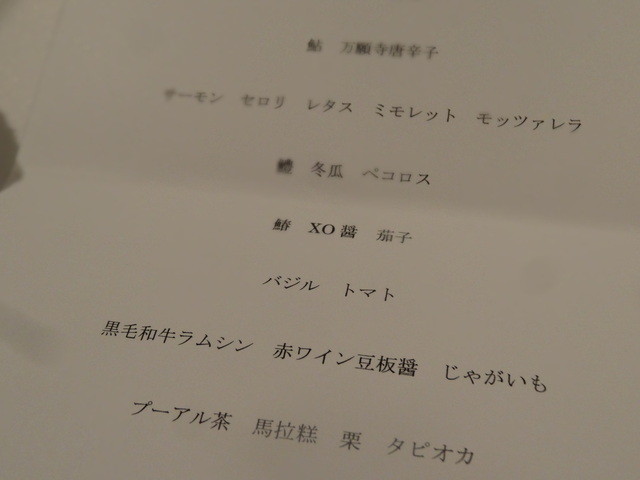 鮎 万願寺唐辛子
サーモン セロリ レタス ミモレット モッツァレラ
冬瓜 ペコロス
鰆 XO醤 茄子
バジル トマト
黒毛和牛ラムシン 赤ワイン豆板醤 じゃがいも
プーアル茶 馬拉糕 栗 タピオカ